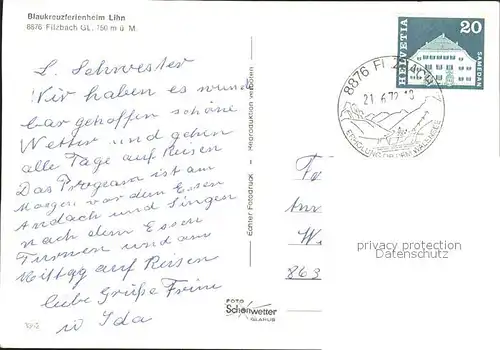 Blaukreuzferienheim Lihn
8876 Filzbach GL. 750 m ü M.
L. Schwester
Wir haben es wunder
bar getroffen schöne
Wetter und gehen
alle Tage auf Reisen
Das Program ist am
Morgen vor dem Essen
Andach und Singen
nach dem Essen
Turnen und am
Mittag auf Reisen
liebe Grüße
Ida
Echter Fotodruck - Reproduktion verboten
FOTO
Schönwetter
GLARUS
HELVETIA
20
SAMEDAN
8876 FILZBACH
21.6.72
863
privacy protection
Datenschutz